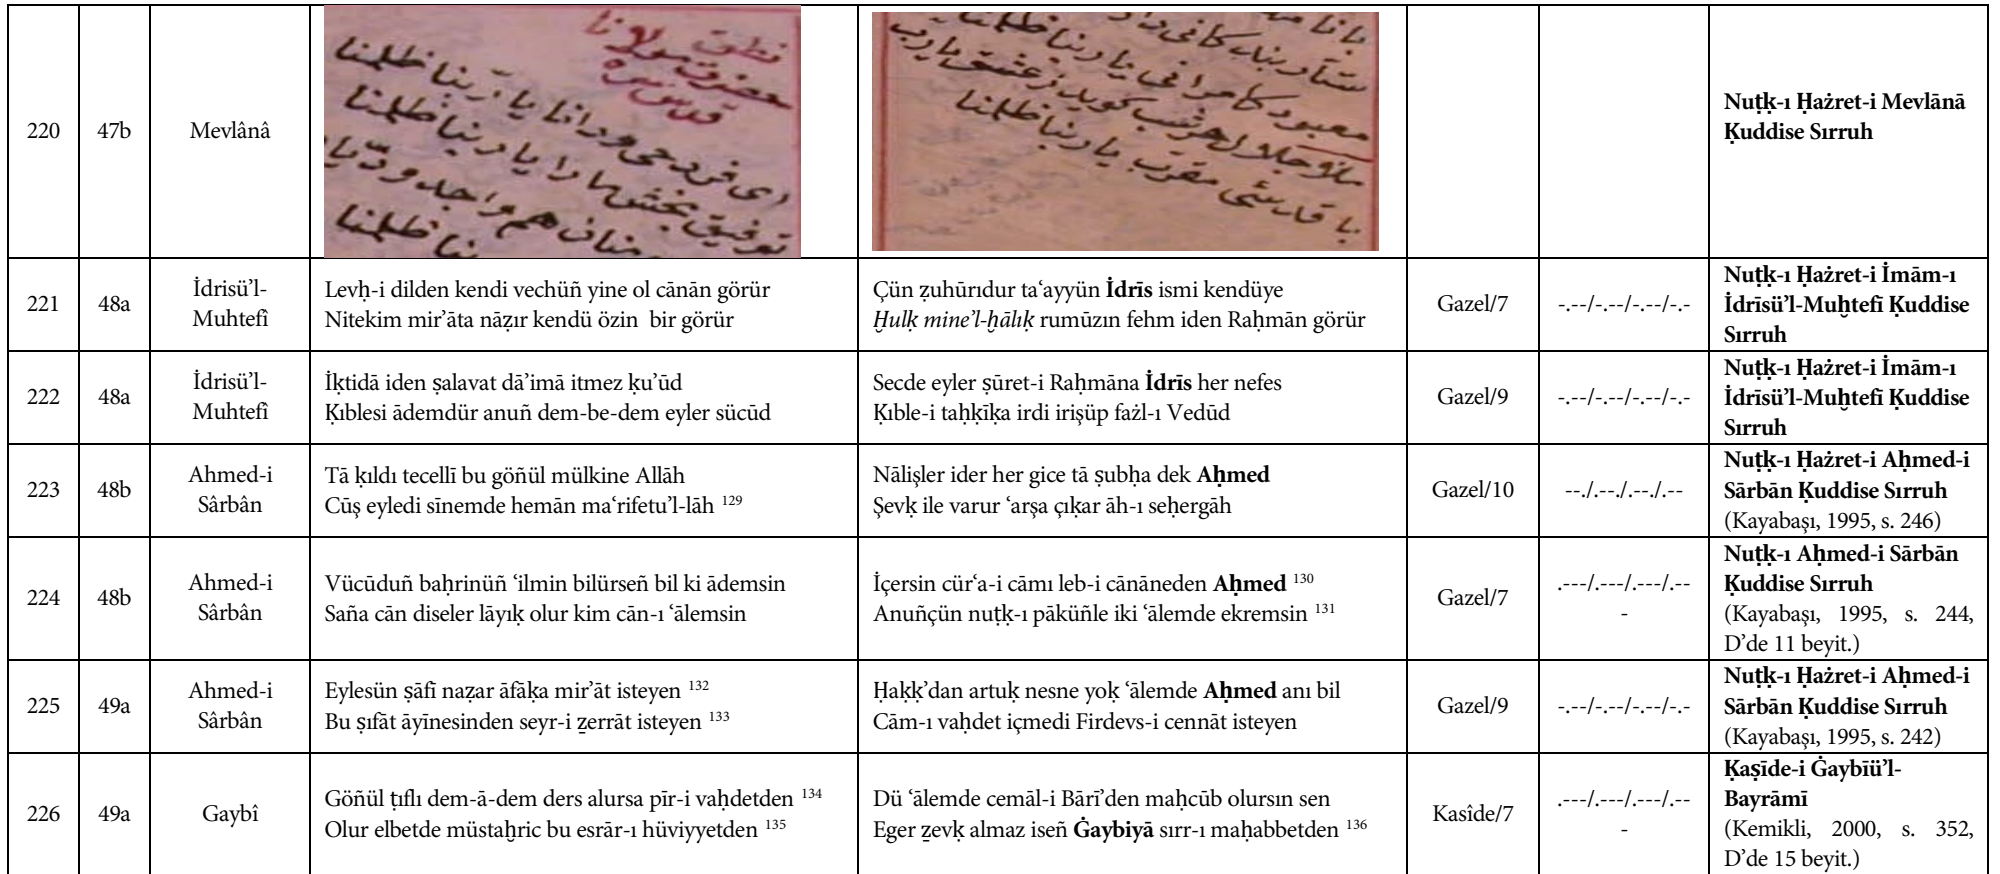 220
47b
Mevlânâ
نطق
حضرت مولانا
قدس سره
ای فرد حی ودانا یا ربنا ظلمنا
توفیق بخش ما را یا ربنا ظلمنا
منان هم واحد و
نا ظلمنا
معبود کامرانی یا ربنا ظلمنا
یا ربنا ظلمنا
Nuṭḳ-ı Ḥażret-i Mevlānā
Ḳuddise Sırruh
221
48a
İdrisü’l-
Muhtefî
Levḥ-i dilden kendi vechüñ yine ol cānān görür
Nitekim mir’āta nāẓır kendü özin bir görür
Çün ẓuhūrıdur ta‘ayyün İdrīs ismi kendüye
Ḫulḳ mine’l-ḫālıḳ rumūzın fehm iden Raḥmān görür
Gazel/7
-.--/-.--/-.--/-.-
Nuṭḳ-ı Ḥażret-i İmām-ı
İdrīsü’l-Muḫtefī Ḳuddise
Sırruh
222
48a
İdrisü’l-
Muhtefî
İḳtidā iden ṣalavat dā’imā itmez ḳu’ūd
Ḳıblesi ādemdür anuñ dem-be-dem eyler sücūd
Secde eyler ṣūret-i Raḥmāna İdrīs her nefes
Ḳıble-i taḥḳīḳa irdi irişüp fażl-ı Vedūd
Gazel/9
-.--/-.--/-.--/-.-
Nuṭḳ-ı Ḥażret-i İmām-ı
İdrīsü’l-Muḫtefī Ḳuddise
Sırruh
223
48b
Ahmed-i
Sârbân
Tā ḳıldı tecellī bu göñül mülkine Allāh
Cūş eyledi sīnemde hemān ma‘rifetu’l-lāh 129
Nālişler ider her gice tā ṣubḥa dek Aḥmed
Şevḳ ile varur ‘arşa çıkar āh-ı seḥergāh
Gazel/10
--./.--./.--./.--
Nuṭḳ-ı Ḥażret-i Aḥmed-i
Sārbān Ḳuddise Sırruh
(Kayabaşı, 1995, s. 246)
224
48b
Ahmed-i
Sârbân
Vücūduñ baḥrinüñ ‘ilmin bilürseñ bil ki ādemsin
Saña cān diseler lāyıḳ olur kim cān-ı ‘ālemsin
İçersin cür‘a-i cāmı leb-i cānāneden Aḥmed 130
Anuñçün nuṭḳ-ı pāküñle iki ‘ālemde ekremsin 131
Gazel/7
.---/.---/.---/.--
-
Nuṭḳ-ı Aḥmed-i Sārbān
Ḳuddise Sırruh
(Kayabaşı, 1995, s. 244,
D’de 11 beyit.)
225
49a
Ahmed-i
Sârbân
Eylesün ṣāfī naẓar āfāḳa mir’āt isteyen 132
Bu ṣıfāt āyīnesinden seyr-i ẕerrāt isteyen 133
Ḥaḳḳ’dan artuḳ nesne yoḳ ‘ālemde Aḥmed anı bil
Cām-ı vaḥdet içmedi Firdevs-i cennāt isteyen
Gazel/9
-.--/-.--/-.--/-.-
Nuṭḳ-ı Ḥażret-i Aḥmed-i
Sārbān Ḳuddise Sırruh
(Kayabaşı, 1995, s. 242)
226
49a
Gaybî
Göñül ṭıflı dem-ā-dem ders alursa pīr-i vaḥdetden 134
Olur elbetde müstaḫric bu esrār-ı hüviyyetden 135
Dü ‘ālemde cemāl-i Bārī’den maḥcūb olursın sen
Eger ẕevḳ almaz iseñ Ġaybiyā sırr-ı maḥabbetden 136
Kasîde/7
.---/.---/.---/.--
-
Ḳaṣīde-i Ġaybīü’l-
Bayrāmī
(Kemikli, 2000, s. 352,
D’de 15 beyit.)